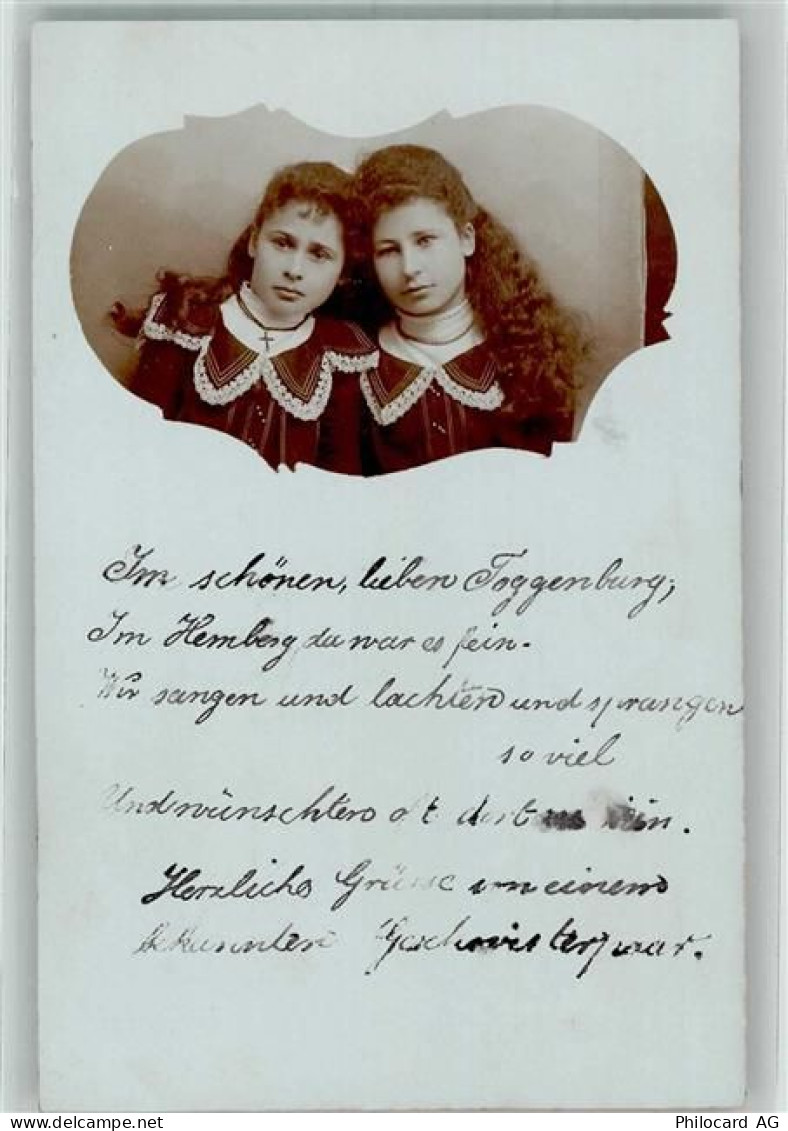 Im schönen, lieben Toggenburg,
Im Hemberg da war es fein.
Wir sangen und lachten und sprangen
so viel
Und wünschten oft dort zu sein.
Herzliche Grüsse von einem
bekannten Geschwisterpaar.
hippostcard.com
Philocard AG